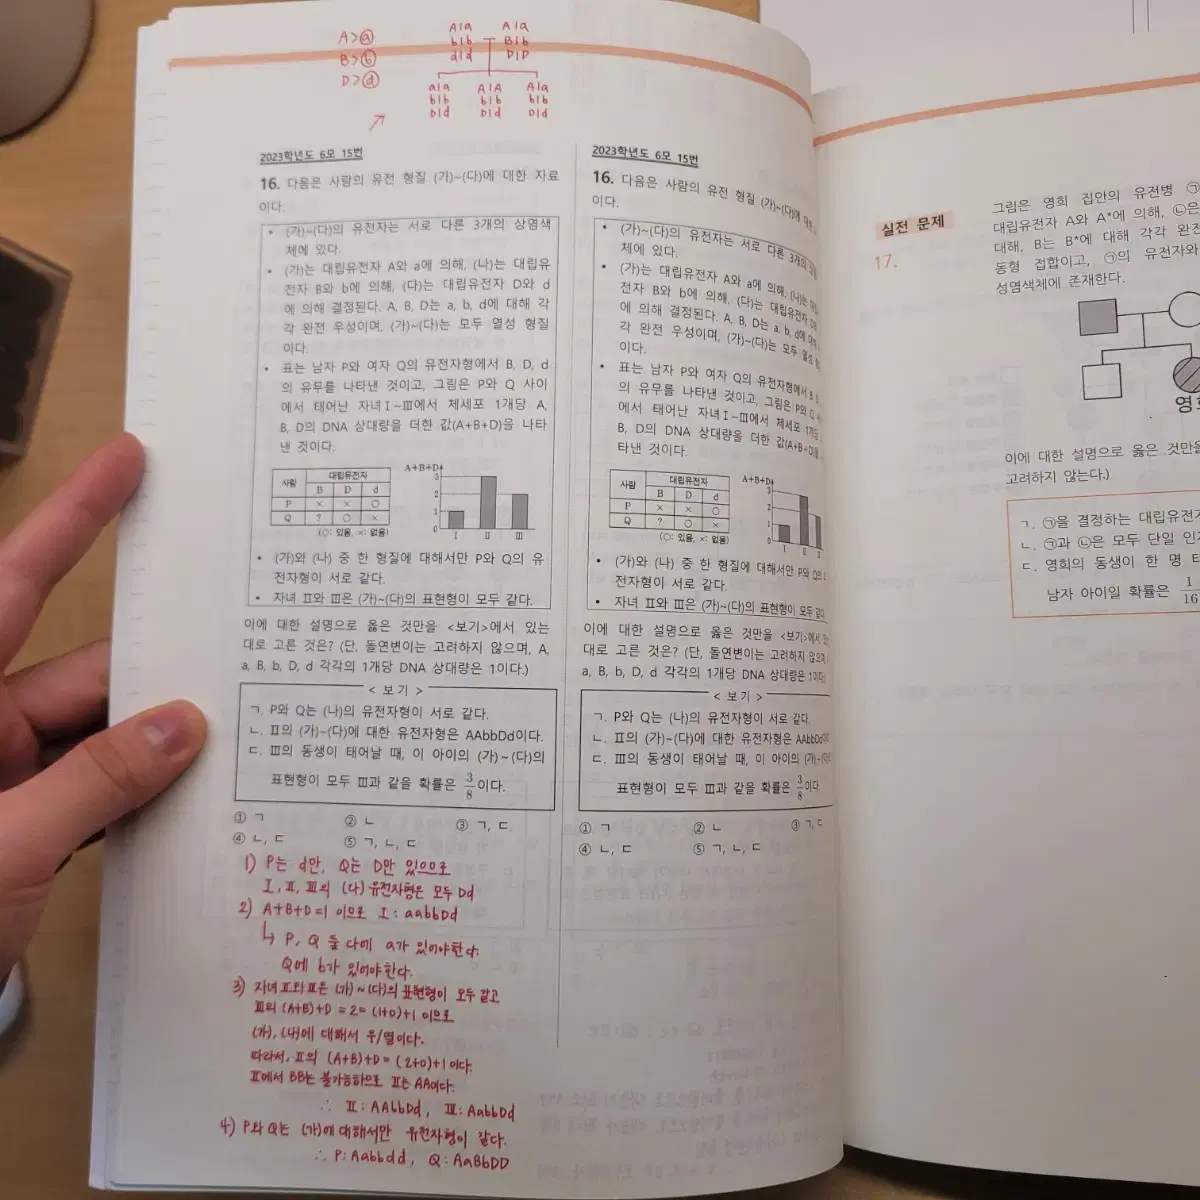 A>ⓐ
B>ⓑ
D>ⓓ
A|a A|a
b|b B|b
d|d D|D
a|a A|A A|a
b|b b|b b|b
D|d D|d D|d
2023학년도 6모 15번
16. 다음은 사람의 유전 형질 (가)~(다)에 대한 자료
이다.
• (가)~(다)의 유전자는 서로 다른 3개의 상염색
체에 있다.
• (가)는 대립유전자 A와 a에 의해, (나)는 대립유
전자 B와 b에 의해, (다)는 대립유전자 D와 d
에 의해 결정된다. A, B, D는 a, b, d에 대해 각
각 완전 우성이며, (가)~(다)는 모두 열성 형질
이다.
• 표는 남자 P와 여자 Q의 유전자형에서 B, D, d
의 유무를 나타낸 것이고, 그림은 P와 Q 사이
에서 태어난 자녀 Ⅰ~Ⅲ에서 체세포 1개당 A,
B, D의 DNA 상대량을 더한 값(A+B+D)을 나타
낸 것이다.
사람 대립유전자
B D d
P × × ○
Q ? ○ ×
(○: 있음, ×: 없음)
A+B+D
3
2
1
0
Ⅰ Ⅱ Ⅲ
• (가)와 (나) 중 한 형질에 대해서만 P와 Q의 유
전자형이 서로 같다.
• 자녀 Ⅱ와 Ⅲ은 (가)~(다)의 표현형이 모두 같다.
이에 대한 설명으로 옳은 것만을 <보기>에서 있는
대로 고른 것은? (단, 돌연변이는 고려하지 않으며, A,
a, B, b, D, d 각각의 1개당 DNA 상대량은 1이다.)
< 보기 >
ㄱ. P와 Q는 (나)의 유전자형이 서로 같다.
ㄴ. Ⅱ의 (가)~(다)에 대한 유전자형은 AAbbDd이다.
ㄷ. Ⅲ의 동생이 태어날 때, 이 아이의 (가)~(다)의
표현형이 모두 Ⅲ과 같을 확률은 3/8이다.
① ㄱ ② ㄴ ③ ㄱ, ㄷ
④ ㄴ, ㄷ ⑤ ㄱ, ㄴ, ㄷ
1) P는 d만, Q는 D만 있으므로
Ⅰ, Ⅱ, Ⅲ의 (다) 유전자형은 모두 Dd
2) A+B+D=1 이므로 Ⅰ: aabbDd
↳ P, Q 둘 다에 a가 있어야한다.
Q에 b가 있어야한다.
3) 자녀 Ⅱ와 Ⅲ은 (가)~(다)의 표현형이 모두 같고
Ⅲ의 (A+B)+D = 2 = (1+0)+1 이므로
(가), (나)에 대해서 우/열이다.
따라서, Ⅱ의 (A+B)+D = (2+0)+1 이다.
Ⅱ에서 BB는 불가능하므로 Ⅱ는 AA이다.
∴ Ⅱ: AAbbDd, Ⅲ: AabbDd
4) P와 Q는 (가)에 대해서만 유전자형이 같다.
∴ P: Aabbdd, Q: AaBbDD
2023학년도 6모 15번
16. 다음은 사람의 유전 형질 (가)~(다)에
이다.
• (가)~(다)의 유전자는 서로 다른 3개의
체에 있다.
• (가)는 대립유전자 A와 a에 의해, (나)는
전자 B와 b에 의해, (다)는 대립유전자
에 의해 결정된다. A, B, D는 a, b, d에
각 완전 우성이며, (가)~(다)는 모두 열성
이다.
• 표는 남자 P와 여자 Q의 유전자형에서
의 유무를 나타낸 것이고, 그림은 P와 Q
에서 태어난 자녀 Ⅰ~Ⅲ에서 체세포
B, D의 DNA 상대량을 더한 값(A+B+D)을
타낸 것이다.
사람 대립유전자
B D d
P × × ○
Q ? ○ ×
(○: 있음, ×: 없음)
A+B+D
3
2
1
0
Ⅰ Ⅱ
• (가)와 (나) 중 한 형질에 대해서만 P와 Q의
전자형이 서로 같다.
• 자녀 Ⅱ와 Ⅲ은 (가)~(다)의 표현형이 모두 같다
이에 대한 설명으로 옳은 것만을 <보기>에서
대로 고른 것은? (단, 돌연변이는 고려하지 않으며,
a, B, b, D, d 각각의 1개당 DNA 상대량은 1이다.)
< 보기 >
ㄱ. P와 Q는 (나)의 유전자형이 서로 같다.
ㄴ. Ⅱ의 (가)~(다)에 대한 유전자형은 AAbbDd
ㄷ. Ⅲ의 동생이 태어날 때, 이 아이의 (가)~
표현형이 모두 Ⅲ과 같을 확률은 3/8이다.
① ㄱ ② ㄴ ③ ㄱ, ㄷ
④ ㄴ, ㄷ ⑤ ㄱ, ㄴ, ㄷ
실전 문제
17.
그림은 영희 집안의 유전병 ㉠
대립유전자 A와 A*에 의해, ㉡은
대해, B는 B*에 대해 각각 완전
동형 접합이고, ㉠의 유전자와
성염색체에 존재한다.
영희
이에 대한 설명으로 옳은 것만을
고려하지 않는다.)
ㄱ. ㉠을 결정하는 대립유전자
ㄴ. ㉠과 ㉡은 모두 단일 인자
ㄷ. 영희의 동생이 한 명
남자 아이일 확률은 1/16